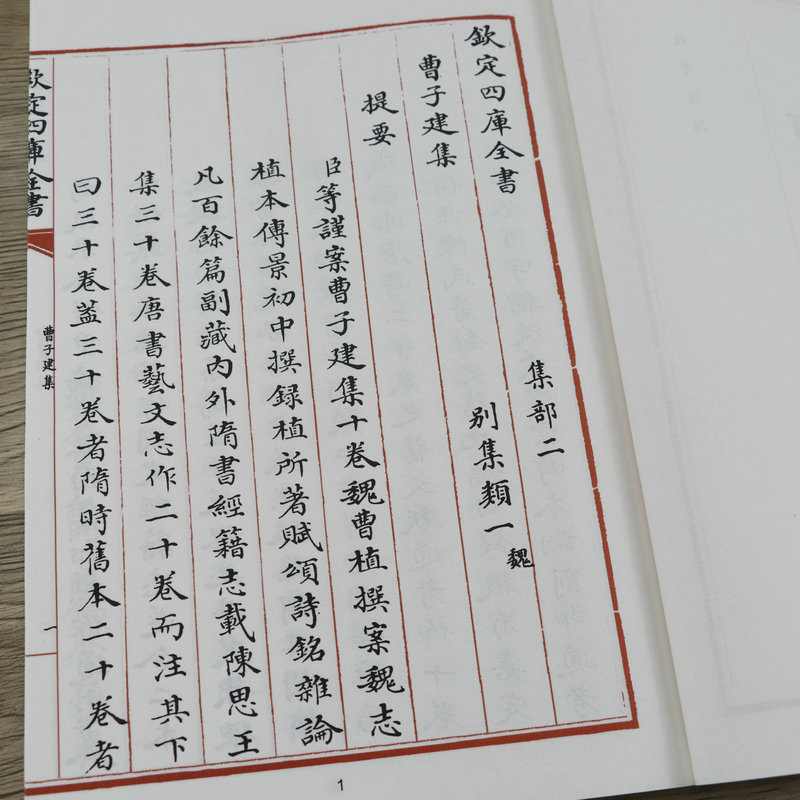 欽定四庫全書 集部二
曹子建集 別集類一 魏
提要
臣等謹案曹子建集十卷魏曹植撰案魏志
植本傳景初中撰録植所著賦頌詩銘雜論
凡百餘篇副藏內外隋書經籍志載陳思王
集三十卷唐書藝文志作二十卷而注其下
曰三十卷葢三十卷者隋時舊本二十卷者
欽定四庫全書
曹子建集
一
1